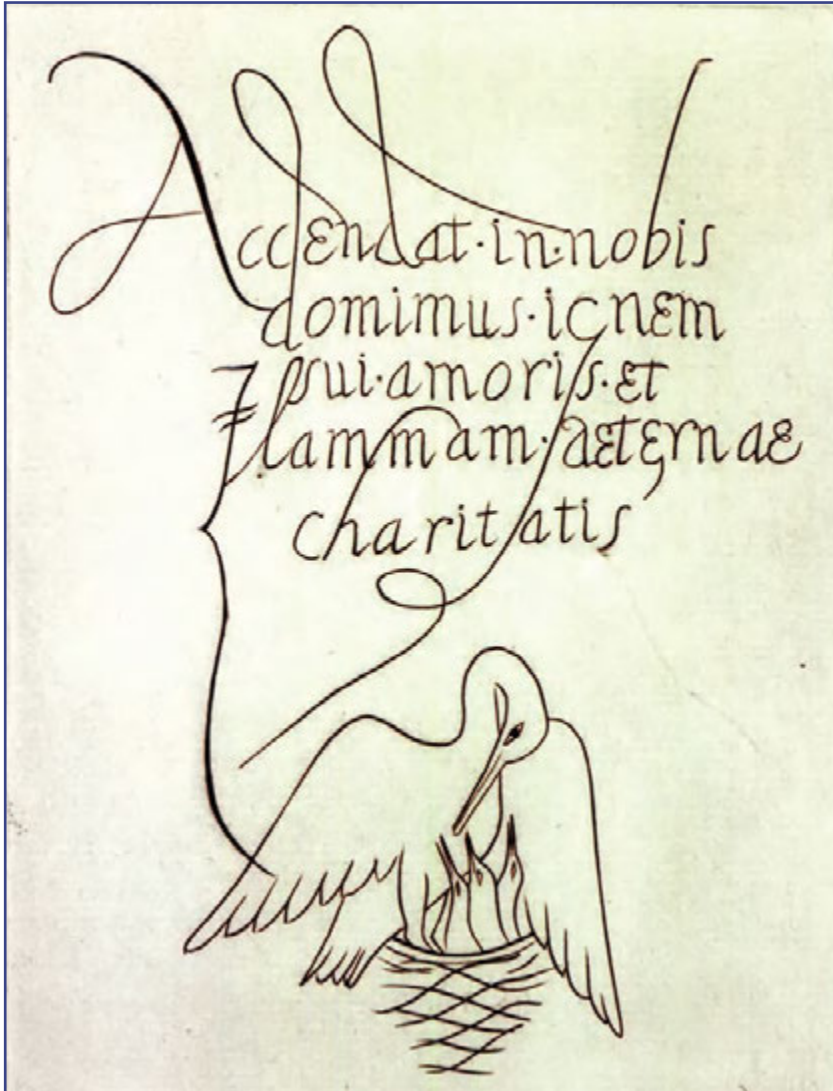 Accendat·in·nobis
domimus·ignem
sui·amoris·et
Flammam·aeternae
charitatis